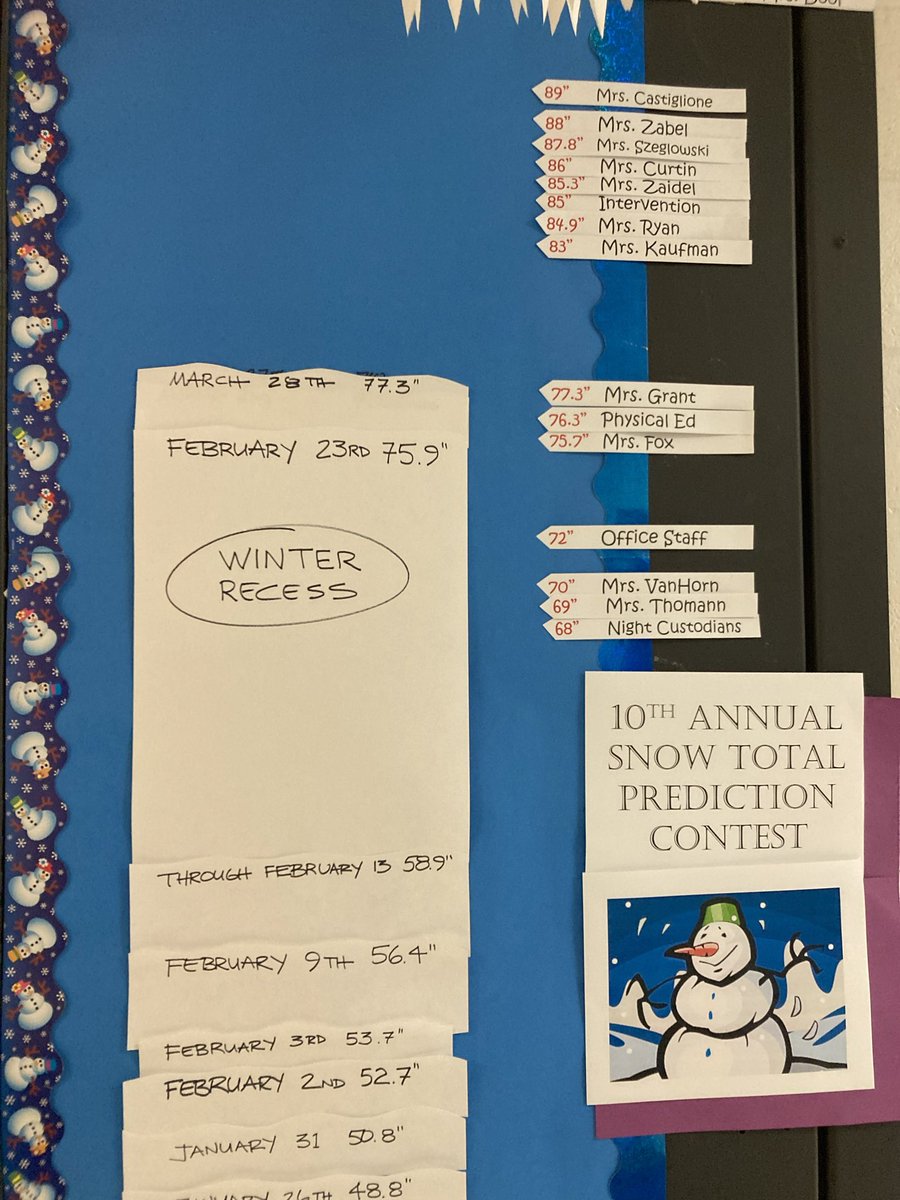 89" Mrs. Castiglione
88" Mrs. Zabel
87.8" Mrs. Szeglowski
86" Mrs. Curtin
85.3" Mrs. Zaidel
85" Intervention
84.9" Mrs. Ryan
83" Mrs. Kaufman
MARCH 28TH 77.3"
77.3" Mrs. Grant
76.3" Physical Ed
75.7" Mrs. Fox
FEBRUARY 23RD 75.9"
WINTER
RECESS
72" Office Staff
70" Mrs. VanHorn
69" Mrs. Thomann
68" Night Custodians
10TH ANNUAL
SNOW TOTAL
PREDICTION
CONTEST
THROUGH FEBRUARY 13 58.9"
FEBRUARY 9TH 56.4"
FEBRUARY 3RD 53.7"
FEBRUARY 2ND 52.7"
JANUARY 31 50.8"
26TH 48.8"